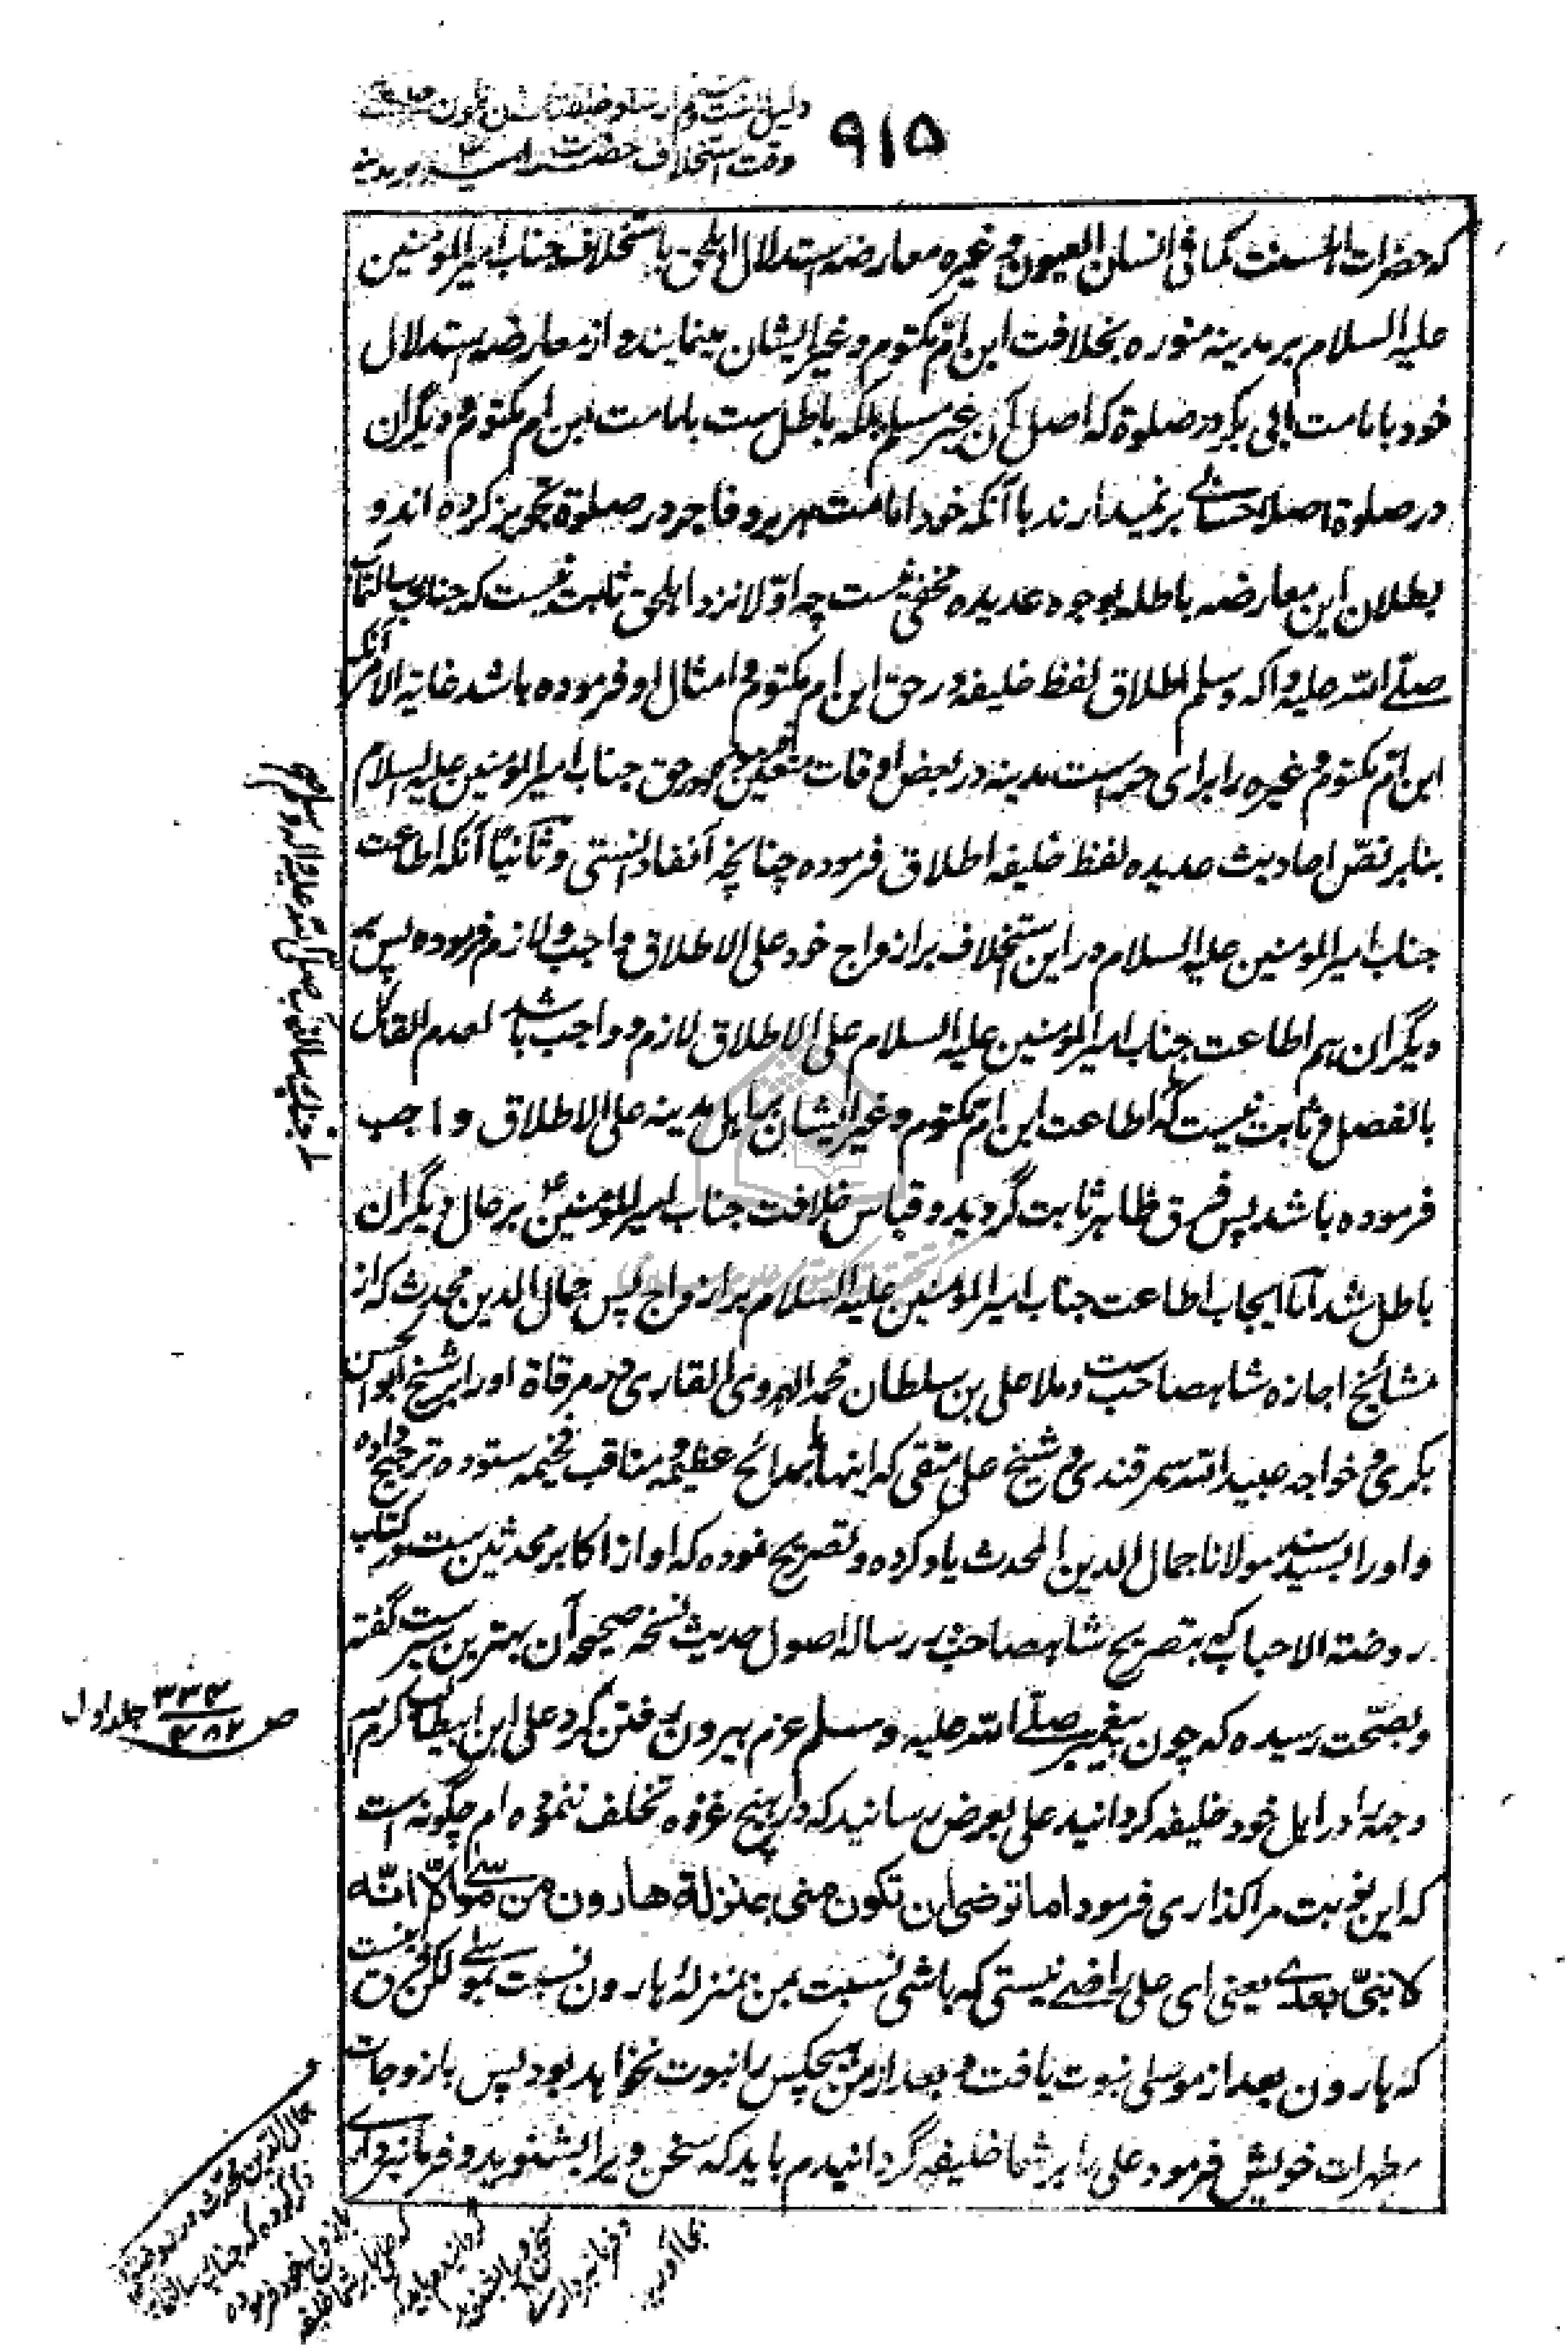 ۹۱۵
وقت استخلاف حضرت امیر بر مدینه
که حضرات اهلسنت کما فی انسان العیون و غیره معارضه استدلال اهلحق باستخلاف جناب امیر المؤمنین
علیه السلام بر مدینه منوره بخلافت ابن ام مکتوم و غیر ایشان مینمایند و از معارضه استدلال
خود بامامت ابی بکر در صلوة که اصل آن غیر مسلم بلکه باطل ست بامامت ابن ام مکتوم و دیگران
در صلوة اصلا حسابی بر نمیدارند با آنکه خود امامت هر بر و فاجر در صلوة تجویز کرده اند و
بطلان این معارضه باطله بوجوه عدیده مخفی نیست چه اوّلا نزد اهلحق ثابت نیست که جناب رسالتمآب
صلّی الله علیه و آله و سلم اطلاق لفظ خلیفه در حق ابن ام مکتوم و امثال او فرموده باشد غایة الامر آنکه
ابن امّ مکتوم و غیره را برای حراست مدینه در بعض اوقات متعین نموده و در حق جناب امیر المؤمنین علیه السلام
بنابر نصّ احادیث عدیده لفظ خلیفه اطلاق فرموده چنانچه آنفا دانستی و ثانیا آنکه اطاعت
جناب امیر المؤمنین علیه السلام در این استخلاف بر ازواج خود علی الاطلاق واجب و لازم فرموده پس بر
دیگران هم اطاعت جناب امیر المؤمنین علیه السلام علی الاطلاق لازم و واجب باشد لعدم القائل
بالفصل و ثابت نیست که اطاعت ابن ام مکتوم و غیر ایشان بر اهل مدینه علی الاطلاق واجب
فرموده باشد پس فرق ظاهر ثابت گردید و قیاس خلافت جناب امیر المؤمنین ع بر حال دیگران
باطل شد اما ایجاب اطاعت جناب امیر المؤمنین علیه السلام بر ازواج پس جمال الدین محدث که از
مشائخ اجازه شاهصاحب ست و ملا علی بن سلطان محمد الهروی القاری در مرقاة او را بر شیخ ابو الحسن
بکری و خواجه عبید الله سمرقندی و شیخ علی متقی که اینها را بمدائح عظیمه و مناقب فخیمه ستوده ترجیح داده
و او را بسید سند مولانا جمال الدین المحدث یاد کرده و تصریح نموده که او از اکابر محدثین ست در کتاب
روضة الاحباب که بتصریح شاهصاحب در رساله اصول حدیث نسخه صحیحه آن بهترین سیر ست گفته
و بصحّت رسیده که چون پیغمبر صلّی الله علیه و سلم عزم بیرون رفتن کرد علی ابن ابیطالب کرم الله
وجهه را در اهل خود خلیفه گردانید علی بعرض رسانید که در هیچ غزوه تخلف ننموده ام چگونه است
که این نوبت مرا گذاری فرمود اما ترضی ان تکون منی بمنزلة هارون من موسی الّا انّه
لا نبیّ بعدی یعنی ای علی راضی نیستی که باشی نسبت بمن بمنزله هارون نسبت بموسی لکن فرق اینست
که هارون بعد از موسی نبوت یافت و بعد از من هیچکس را نبوت نخواهد بود پس با زوجات
مطهرات خویش فرمود علی را بر شما خلیفه گردانیدم باید که سخن ویرا بشنوید و فرمانبرداری
جناب رسالتمآب صلی الله علیه و اله و سلم
ص ۳۳۴
۴۸۲ جلد اول
و جمال الدین محدث در روضه
ذکر کرده که جناب رسالتمآب
بازواج خود فرموده
که علی را بر شما خلیفه
گردانیدم باید که
سخن ویرا بشنوید
و فرمانبرداری
بجا آورید